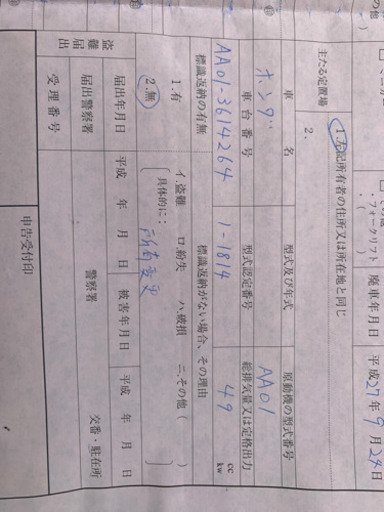 ・フォークリフト
廃車年月日 平成27年9月24日
主たる定置場
1.左記所有者の住所又は所在地と同じ
2、
車名
型式及び年式
原動機の型式番号
ホンダ
AA01
車台番号
型式認定番号
総排気量又は定格出力
AA01-3614264
1-1814
49 cc kw
標識返納の有無
標識返納がない場合、その理由
1.有
2.無
イ.盗難 ロ.紛失 ハ.破損 ニ.その他( )
具体的に:
盗難届出
届出年月日
平成 年 月 日
被害年月日
平成 年 月 日
届出警察署
警察署
交番・駐在所
受理番号
申告受付印